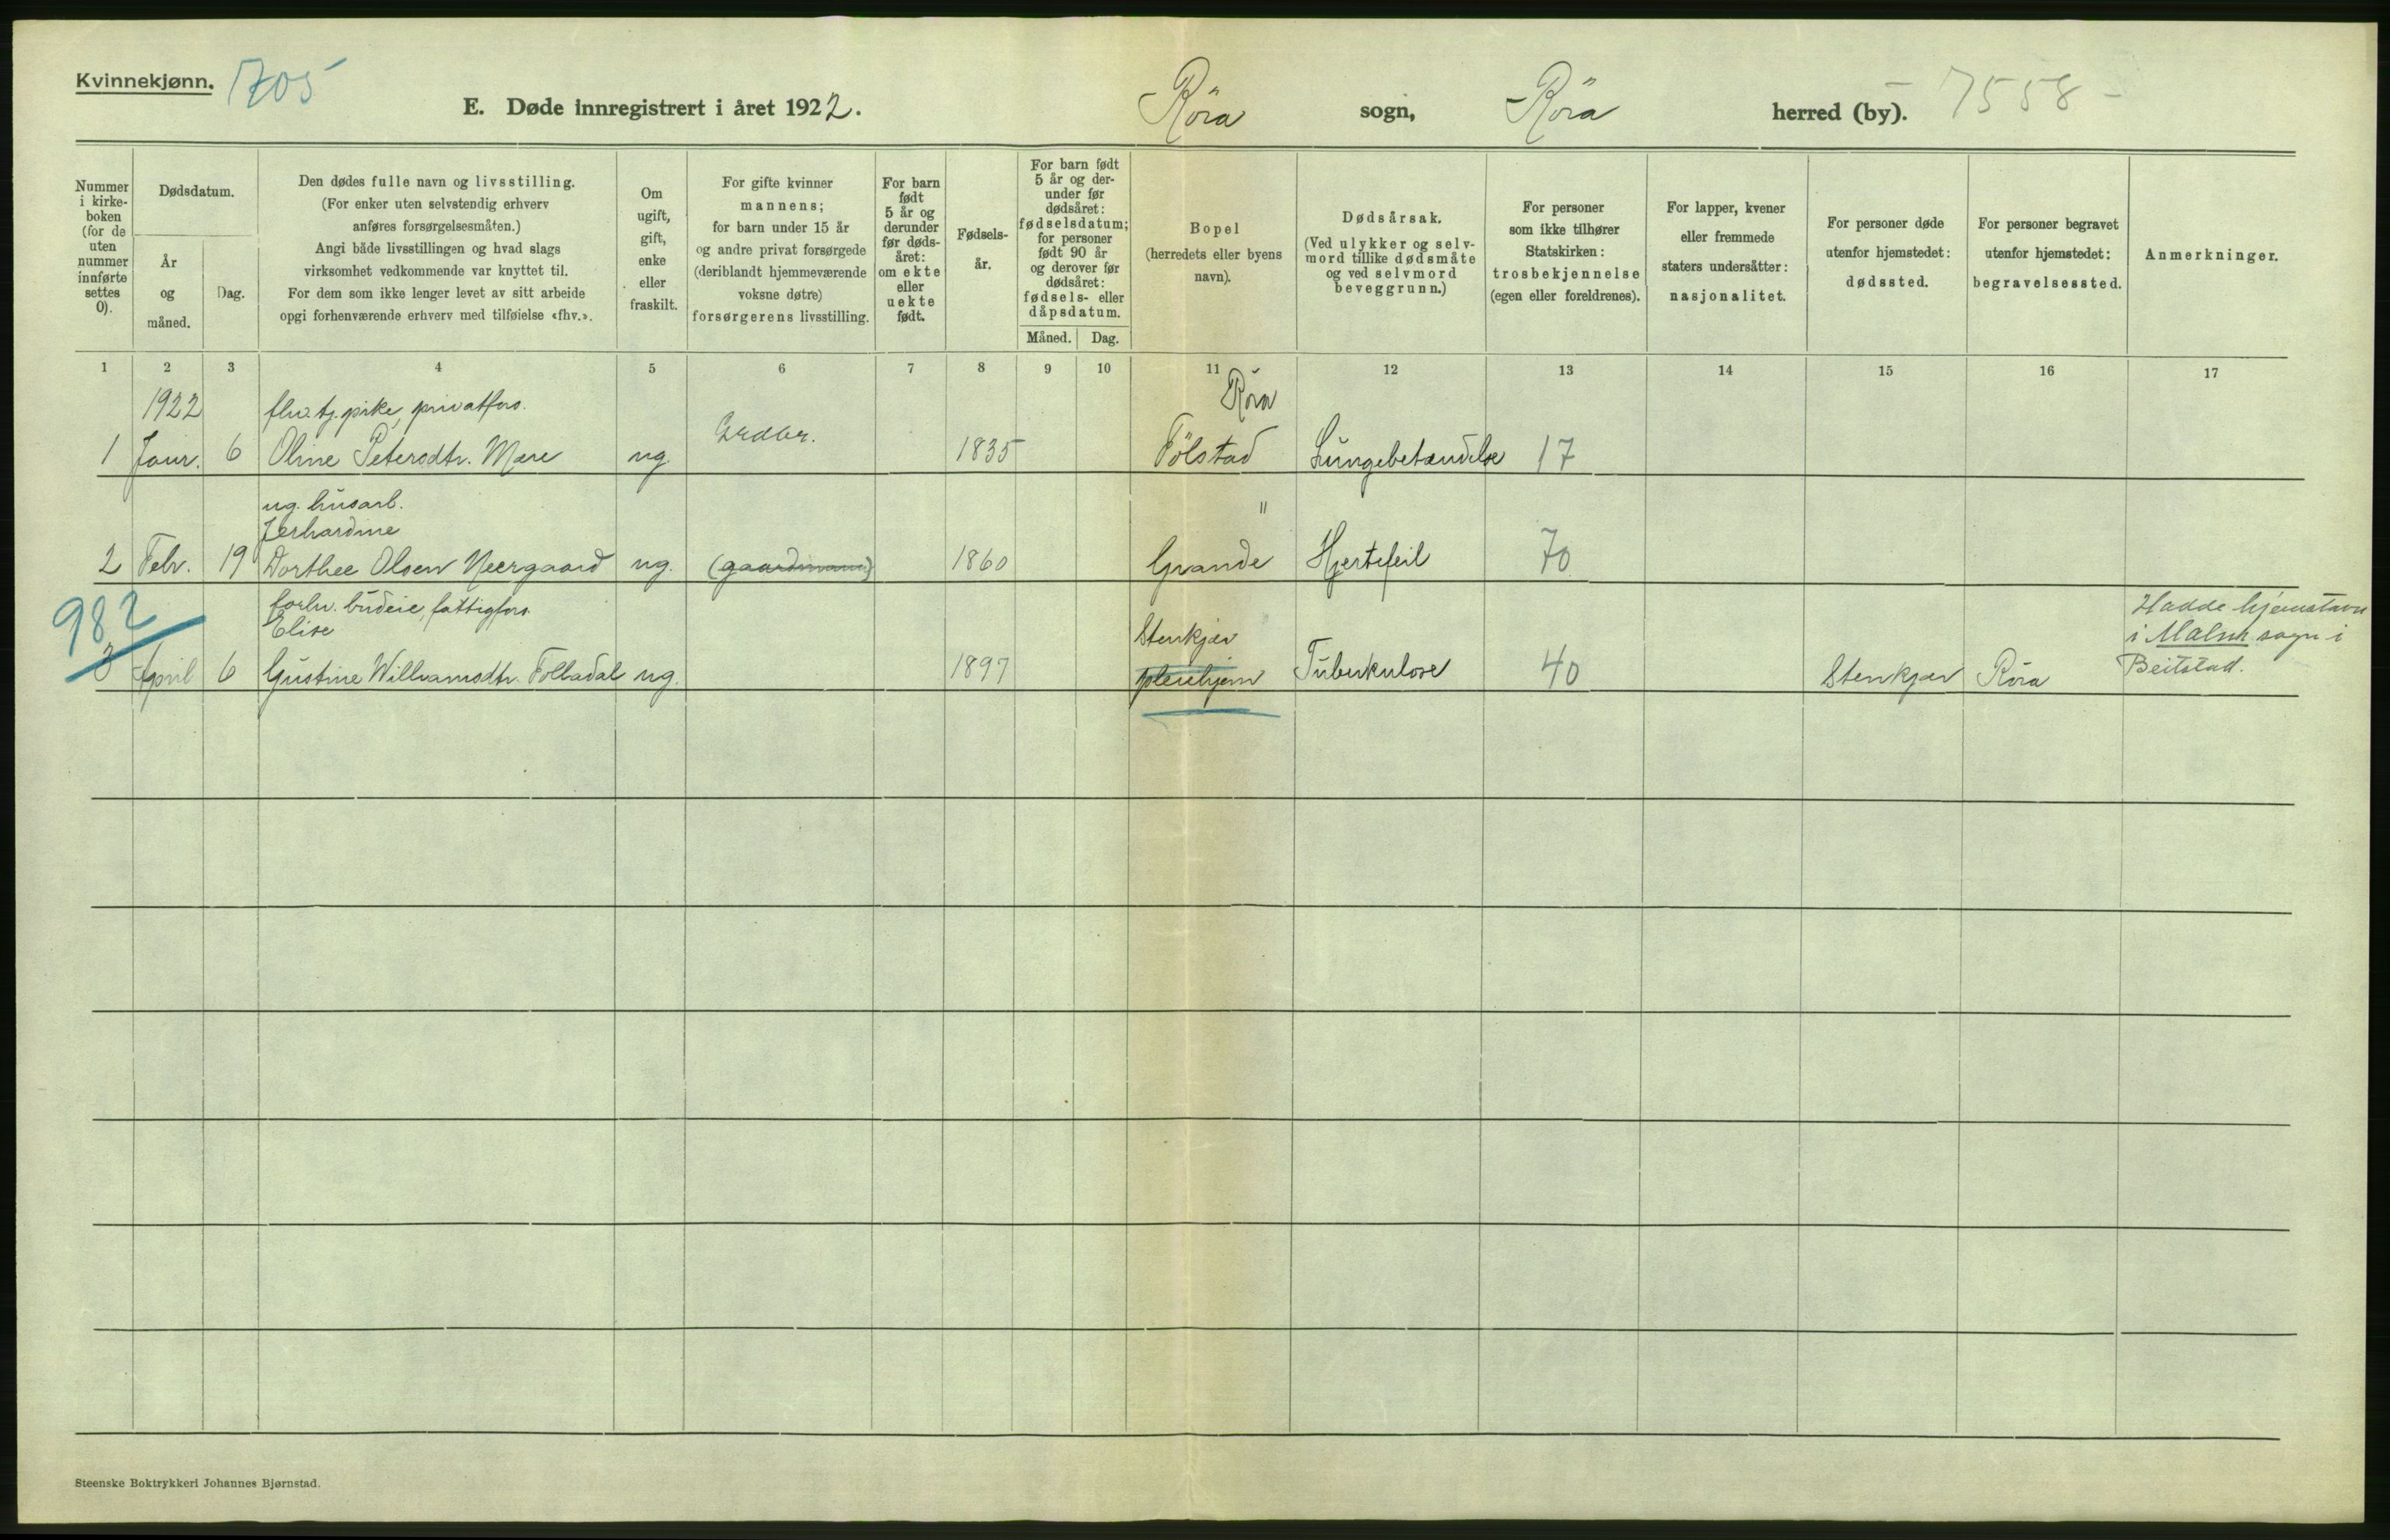 Kvinnekjønn. 1705
E. Døde innregistrert i året 1922. Röra sogn, Röra herred (by). - 7558 -
Nummer
i kirke-
boken
(for de
uten
nummer
innførte
settes
0).
Dødsdatum.
År
og
måned.
Dag.
Den dødes fulle navn og livsstilling.
(For enker uten selvstendig erhverv
anføres forsørgelsesmåten.)
Angi både livsstillingen og hvad slags
virksomhet vedkommende var knyttet til.
For dem som ikke lenger levet av sitt arbeide
opgi forhenværende erhverv med tilføielse «fhv.».
Om
ugift,
gift,
enke
eller
fraskilt.
For gifte kvinner
mannens;
for barn under 15 år
og andre privat forsørgede
(deriblandt hjemmeværende
voksne døtre)
forsørgerens livsstilling.
For barn
født
5 år og
derunder
før døds-
året:
om ekte
eller
uekte
født.
Fødsels-
år.
For barn født
5 år og der-
under før
dødsåret:
fødselsdatum;
for personer
født 90 år
og derover før
dødsåret:
fødsels- eller
dåpsdatum.
Måned. Dag.
Bopel
(herredets eller byens
navn).
Dødsårsak.
(Ved ulykker og selv-
mord tillike dødsmåte
og ved selvmord
beveggrunn.)
For personer
som ikke tilhører
Statskirken:
trosbekjennelse
(egen eller foreldrenes).
For lapper, kvener
eller fremmede
staters undersåtter:
nasjonalitet.
For personer døde
utenfor hjemstedet:
dødssted.
For personer begravet
utenfor hjemstedet:
begravelsessted.
Anmerkninger.
1 2 3 4 5 6 7 8 9 10 11 12 13 14 15 16 17
1922 fhv. tj. pike, privatfors. Röra
1 Janr. 6 Oline Petersdtr. Mære ug. Grdbr. 1835 Fölstad Lungebetændelse 17
ug. husarb. "
Jerhardine
2 Febr. 19 Dorthee Olsen Neergaard ug. (gaardmann) 1860 Grande Hjertefeil 70
982 forhv. budeie, fattigfors. Hadde hjemstavn
Elise Stenkjær i Malm sogn i
3 April 6 Gustine Williamsdtr. Folladal ug. 1897 pleiehjem Tuberkulose 40 Stenkjær Röra Beitstad.
Steenske Boktrykkeri Johannes Bjørnstad.